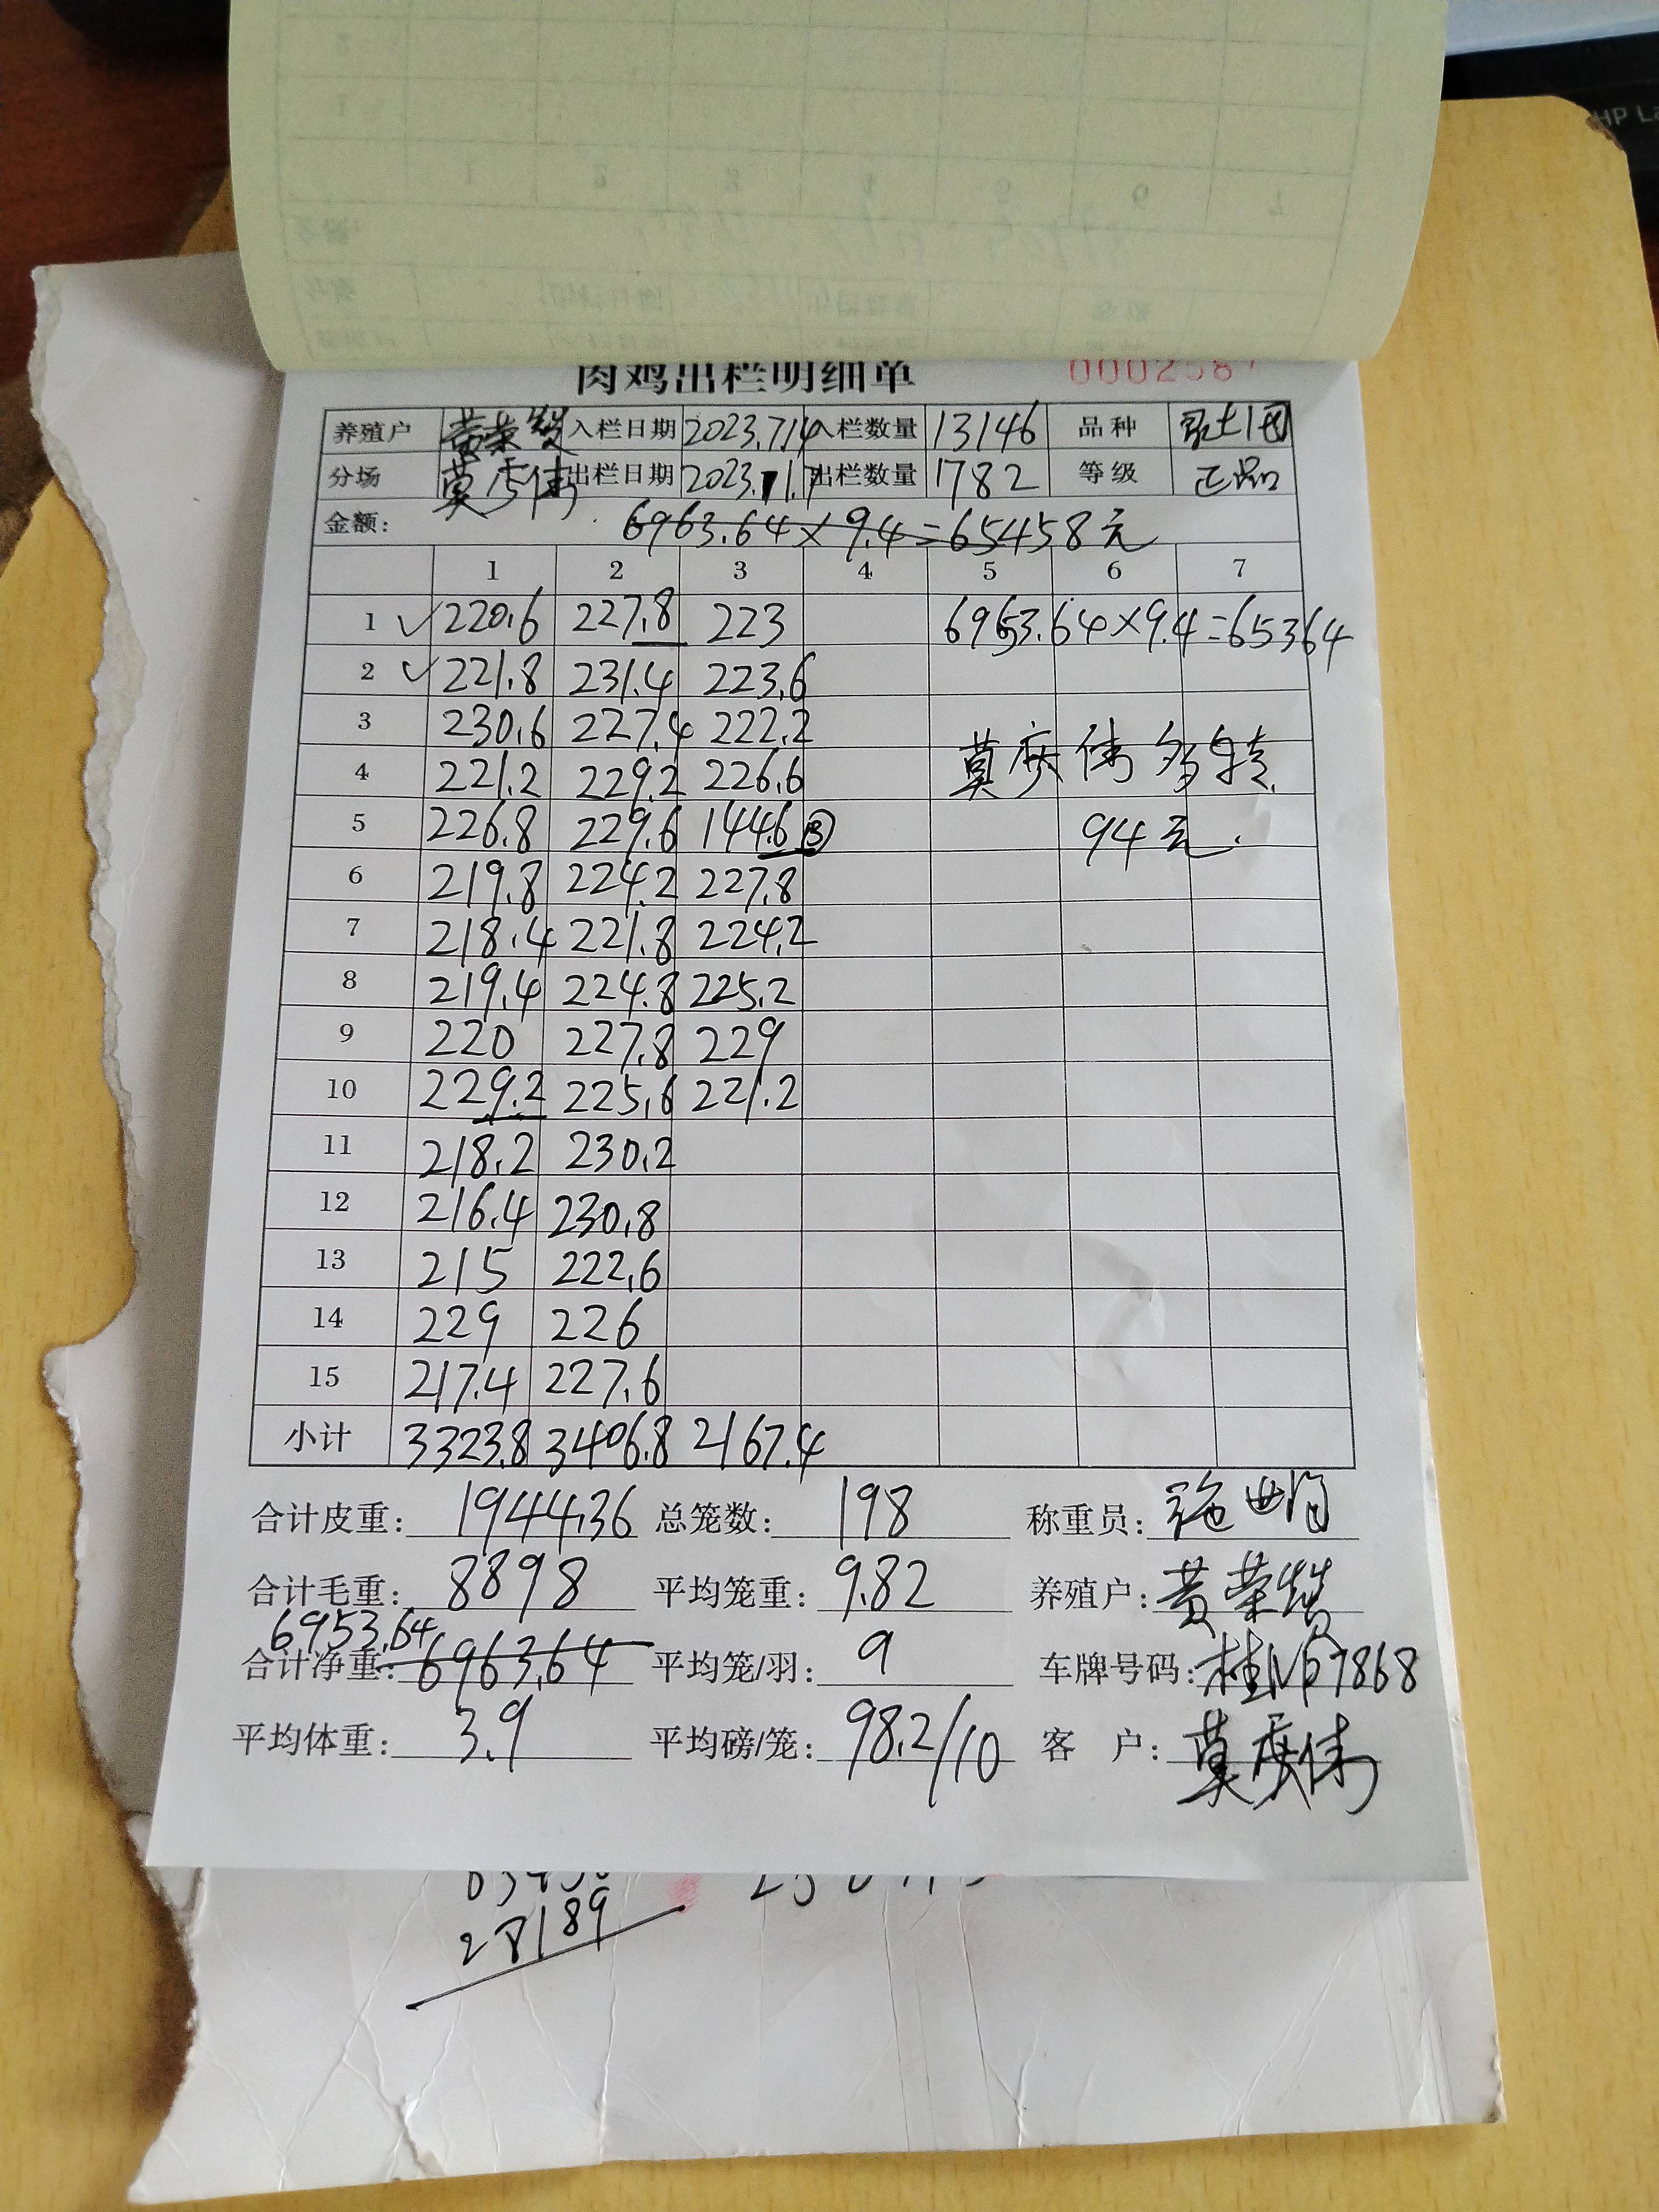 HP La
肉鸡出栏明细单 0002587
养殖户 黄荣 入栏日期 2023.7.14 入栏数量 13146 品种
分场 莫庆伟 出栏日期 2023.11.7 出栏数量 1782 等级 正品
金额: 6963.64×9.4=65458元
1 2 3 4 5 6 7
1 ✓ 220.6 227.8 223 6953.64×9.4=65364
2 ✓ 221.8 231.4 223.6
3 230.6 227.4 222.2 莫庆伟多转
4 221.2 229.2 226.6
5 226.8 229.6 144.6 ⑬ 94元.
6 219.8 224.2 227.8
7 218.4 221.8 224.2
8 219.4 224.8 225.2
9 220 227.8 229
10 229.2 225.6 221.2
11 218.2 230.2
12 216.4 230.8
13 215 222.6
14 229 226
15 217.4 227.6
小计 3323.8 3406.8 2167.4
合计皮重: 1944.36 总笼数: 198 称重员:
合计毛重: 8898 平均笼重: 9.82 养殖户: 黄荣
6953.64
合计净重: 6963.64 平均笼/羽: 9 车牌号码:
平均体重: 3.9 平均磅/笼: 98.2/10 客户: 莫庆伟
28189